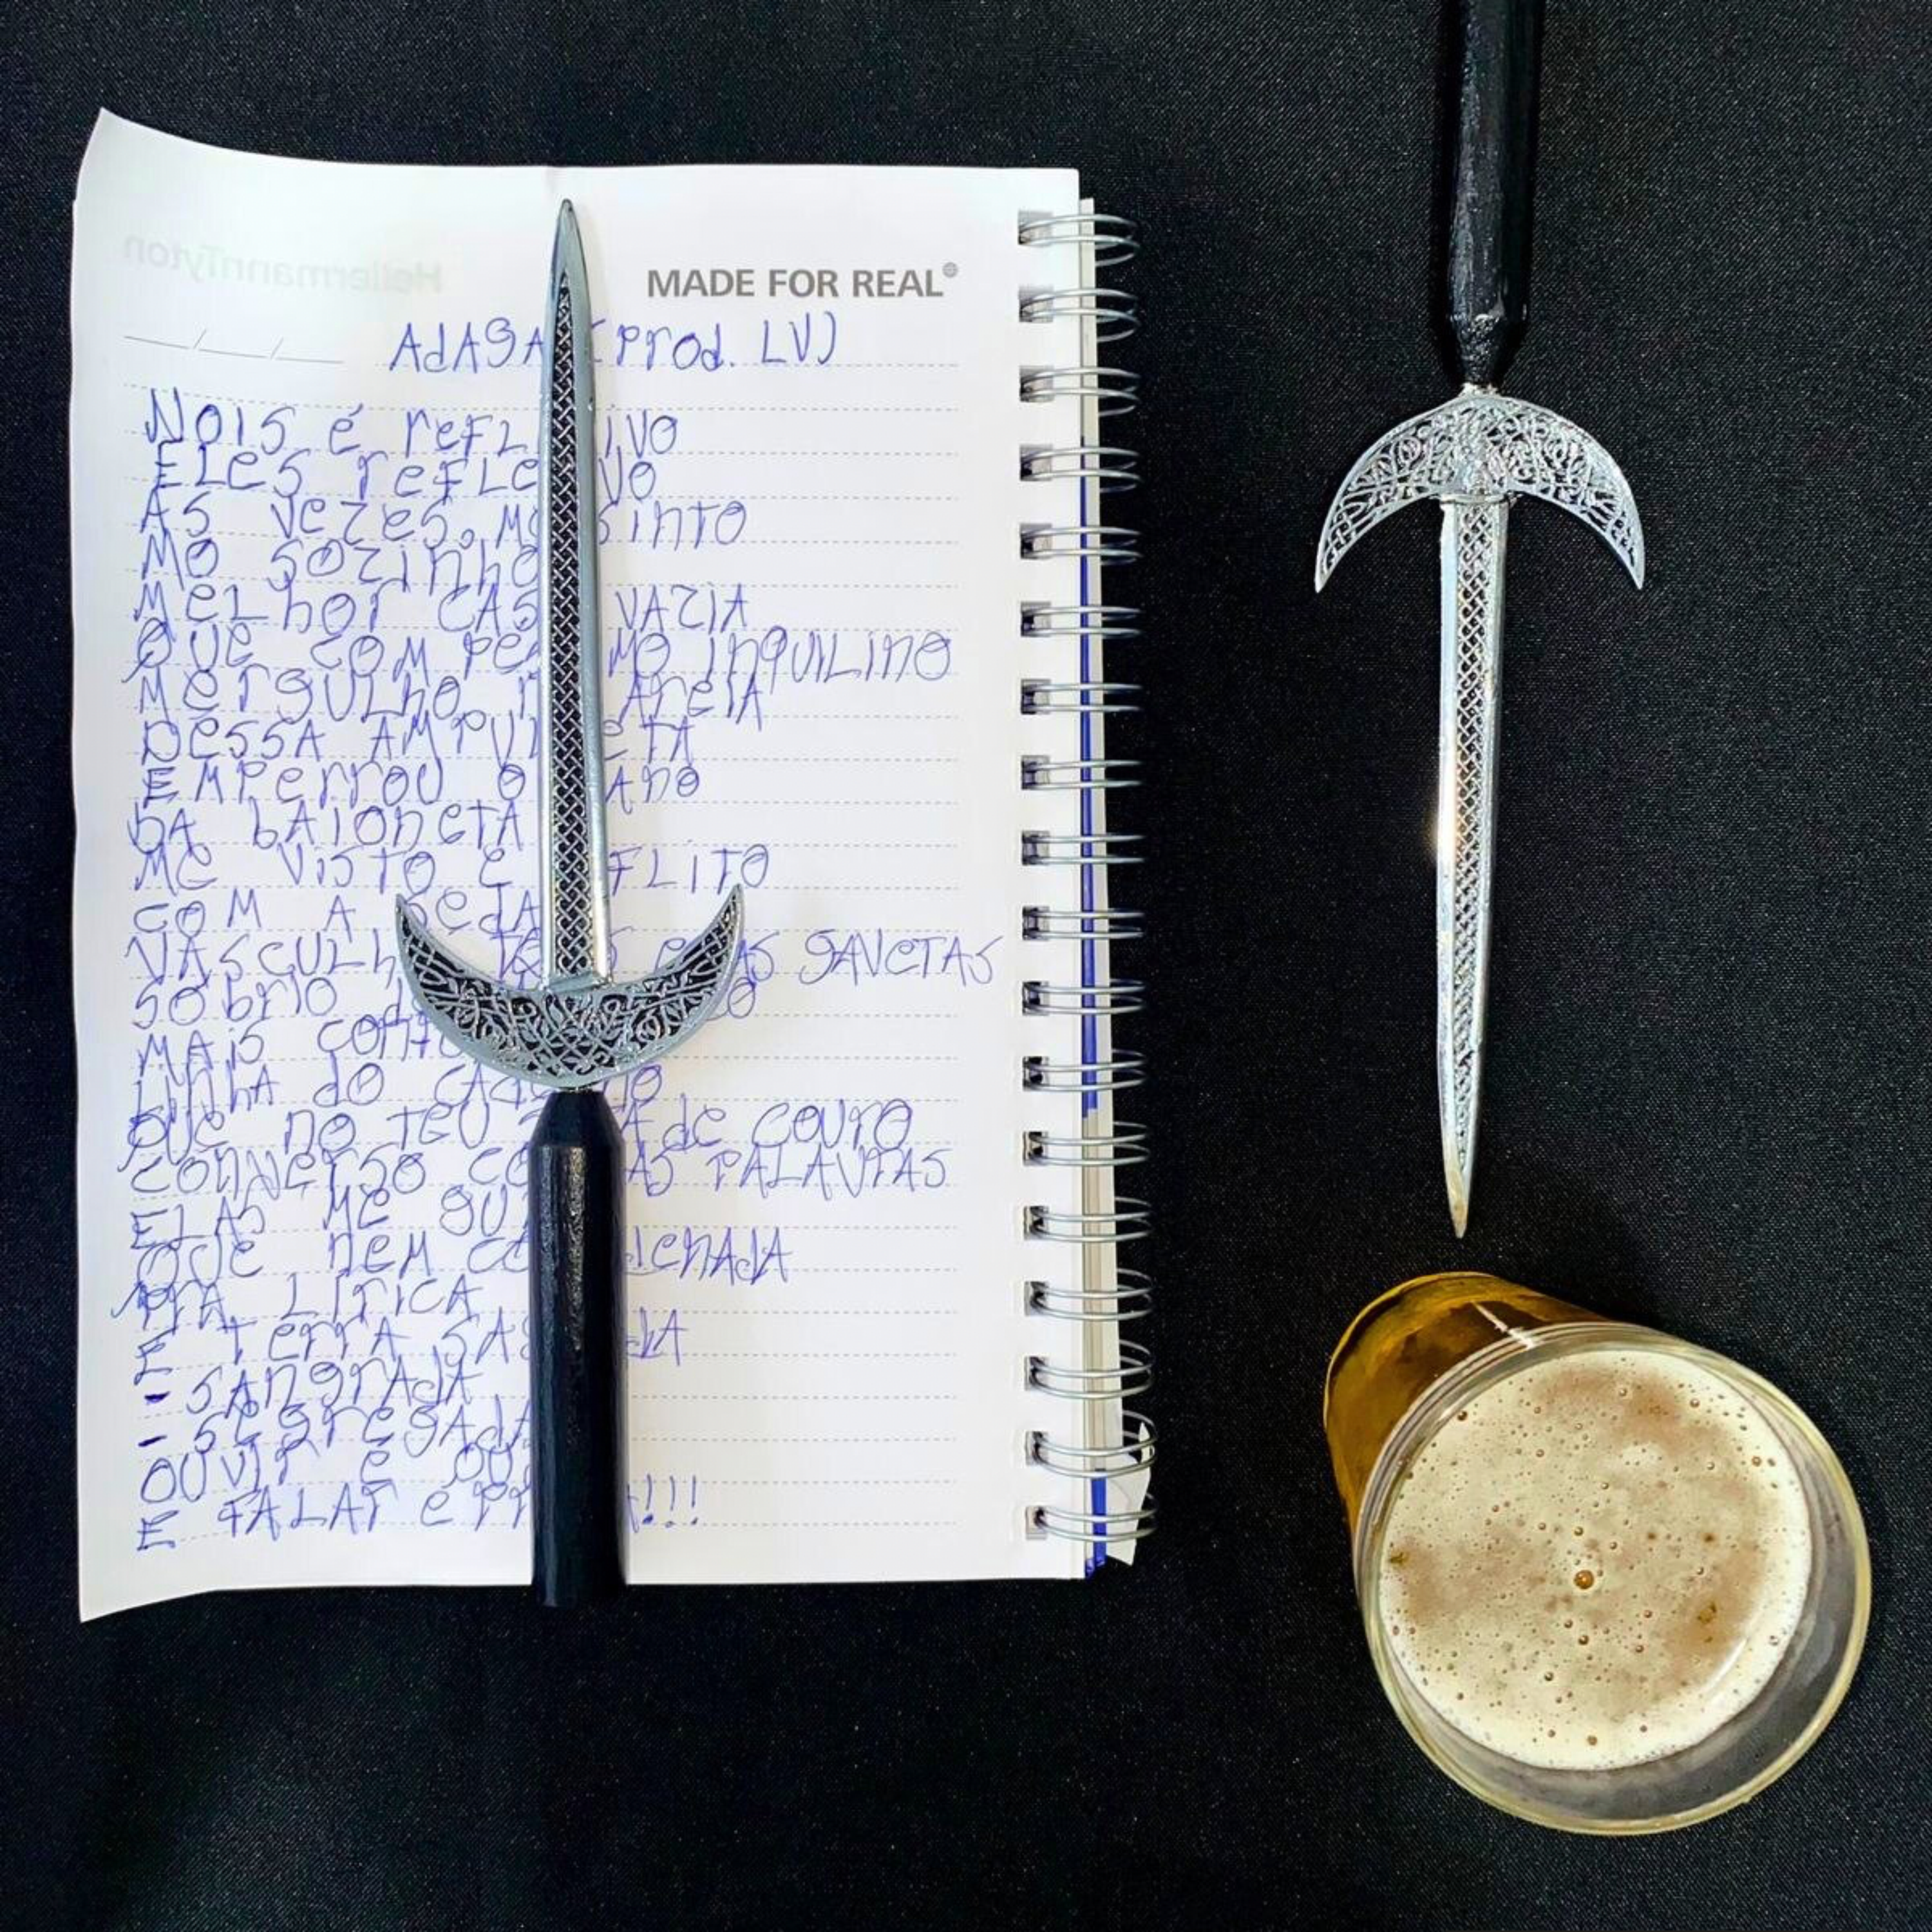 HellermannTyton
MADE FOR REAL®
AdAGA (Prod. LV)
NOIS é refL IVO
ELES refLe VO
AS vezes, Me SINTO
MO SOZINHO
MELhor CASA VAZIA
QUE COM PéSSIMO INQUILINO
MerGULhO NA AreIA
DESSA AMPULhETA
EMPerrou O CANO
DA BAIONETA
ME VISTO E refLITO
COM A BEJA
VASCULhO TODAS ESSAS GAVETAS
SObrIO do
MAIS CONTO
LINhA dO CAderNO
QUE NO TEU de COUrO
CONVErSO COM AS PALAVrAS
ELAS ME GUIAM
QUE NEM CAdENAdA
PrA LÍrICA
E TErrA SAGrAdA
- SANGrAdA
- SEGrEGAdA
OUVIr é OUrO
E FALAr é PrATA!!!